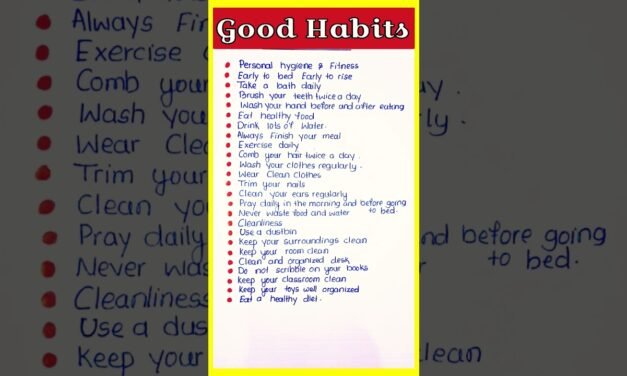 Good Habits
Personal hygiene & Fitness
Early to bed Early to rise
Take a bath daily
Brush your teeth twice a day
Wash your hand before and after eating
Eat healthy food
Drink lots of water.
Always Finish your meal
Exercise daily
Comb your hair twice a day.
Wash your clothes regularly.
Wear Clean clothes
Trim your nails
Clean your ears regularly
Pray daily in the morning and before going
to bed.
Never waste food and water
Cleanliness
Use a dustbin
Keep your surroundings clean
Keep your room clean
Clean and organized desk
Do not scribble on your books
Keep your classroom clean
Keep your toys well organized
Eat a healthy diet.
Always Fin
Exercise
Comb your
Wash you
Wear Cle
Trim your
Clean yo
Pray daily
Never was
Cleanliness
Use a dust
Keep your
ay.
ly.
nd before going
to bed.
clean